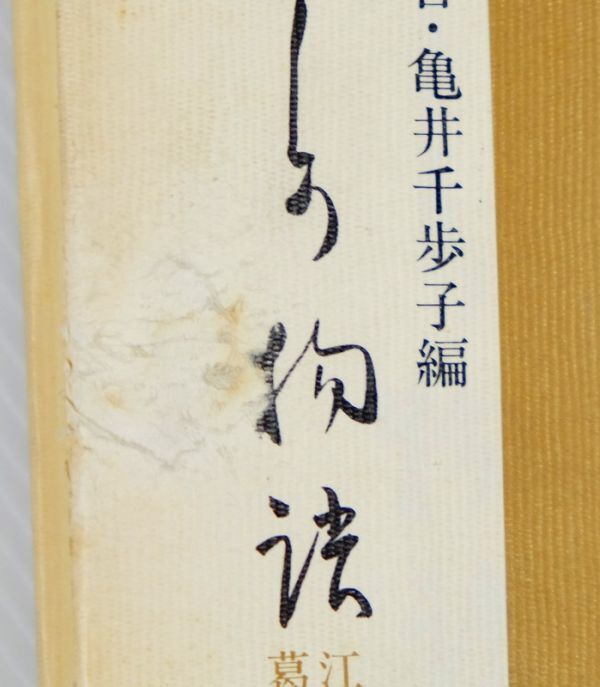 ・亀井千歩子編
しか物語
江
葛